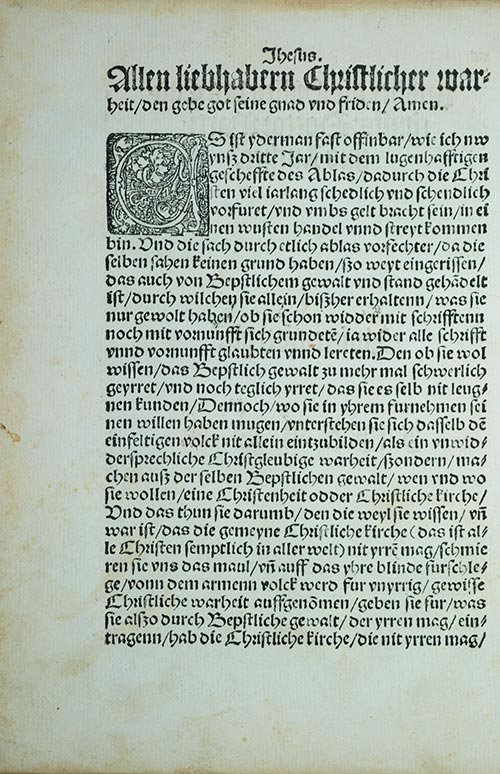 Jhesus.
Allen liebhabern Christlicher war⸗
heit/ den gebe got seine gnad vnd friden/ Amen.
ES ist yderman fast offinbar/ wie ich nw
ynß dritte Jar/ mit dem lugenhafftigen
gescheffte des Ablas/ dadurch die Chri
sten viel iarlang schedlich vnd schendlich
vorfuret/ vnd vmbs gelt bracht sein/ in ei
nen wusten handel vnnd streyt kommen
bin. Vnd die sach durch etlich ablas vorfechter/ da die
selben sahen keinen grund haben/ ßo weyt eingerissen/
das auch von Bepstlichem gewalt vnd stand gehãdelt
ist/ durch wilchen sie allein/ bißher erhaltenn/ was sie
nur gewolt haben/ ob sie schon widder mit schrifftenn
noch mit vornunfft sich grundetẽ/ ia wider alle schrifft
vnnd vornunfft glaubten vnnd lereten. Den ob sie wol
wissen/ das Bepstlich gewalt zu mehr mal schwerlich
geyrret/ vnd noch teglich yrret/ das sie es selb nit leug⸗
nen kunden/ Dennoch/ wo sie in yhrem furnehmen sei
nen willen haben mugen/ vnterstehen sie sich dasselb dẽ
einfeltigen volck nit allein eintzubilden/ als ein vnwid⸗
dersprechliche Christgleubige warheit/ ßondern/ ma⸗
chen auß der selben Bepstlichen gewalt/ wen vnd wo
sie wollen/ eine Christenheit odder Christliche kirche/
Vnd das thun sie darumb/ den die weyl sie wissen/ vñ
war ist/ das die gemeyne Christliche kirche (das ist al⸗
le Christen semptlich in aller welt) nit yrrẽ mag/ schmie
ren sie vns das maul/ vñ auff das yhre blinde furschle⸗
ge/ vonn dem armenn volck werd fur vnyrrig/ gewisse
Christliche warheit auffgenõmen/ geben sie fur/ was
sie alßo durch Bepstliche gewalt/ der yrren mag/ ein⸗
tragenn/ hab die Christliche kirche/ die nit yrren mag/